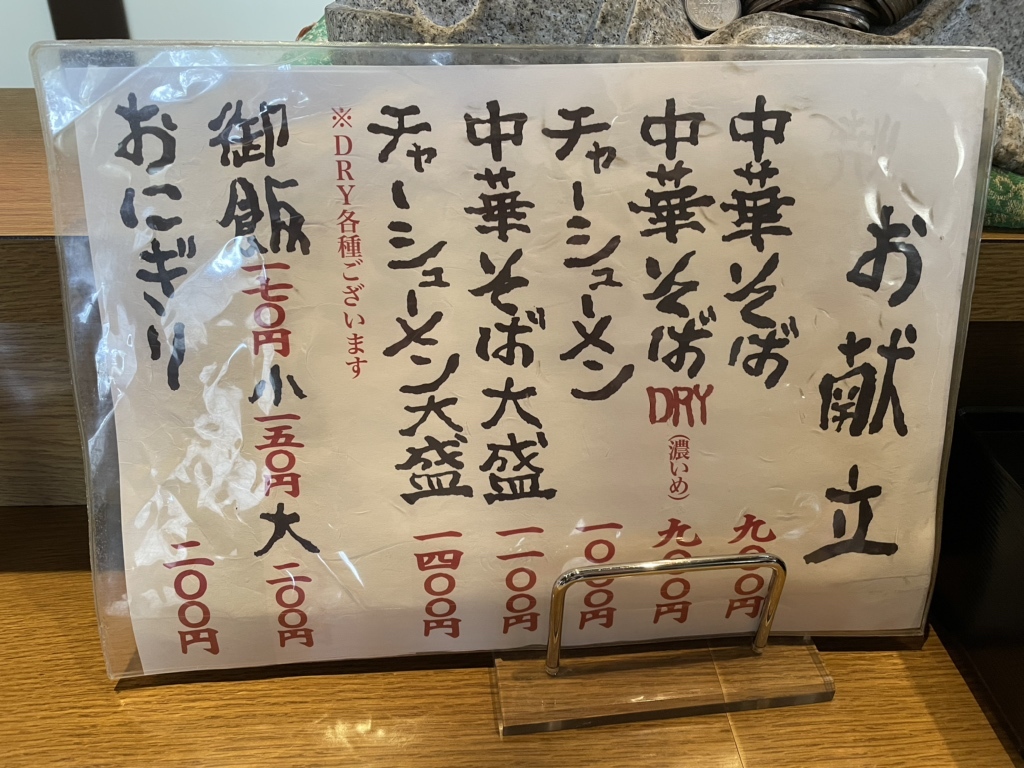 お献立
中華そば 九〇〇円
中華そばDRY(濃いめ) 九〇〇円
チャーシューメン 一〇〇〇円
中華そば大盛 一一〇〇円
チャーシューメン大盛 一四〇〇円
※DRY各種ございます
御飯 一七〇円 小 一五〇円 大 二〇〇円
おにぎり 二〇〇円